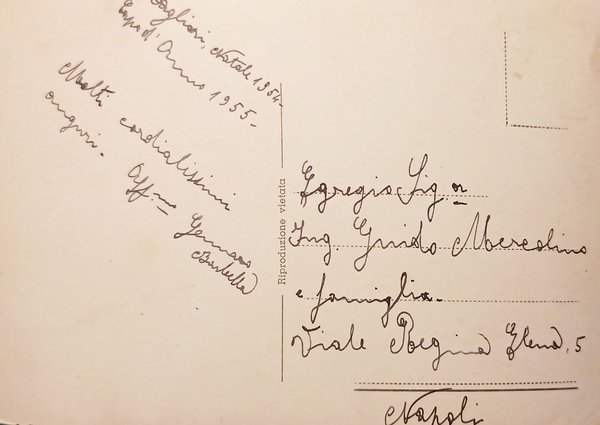 Cagliari, Natale 1954-
Capo d'Anno 1955-
Molti cordialissimi
auguri.
Aff.mo Gennaro
Barbella
Riproduzione vietata
Egregio Sig.or
Ing. Guido Mercolino
e famiglia.
Viale Regina Elena, 5
Napoli